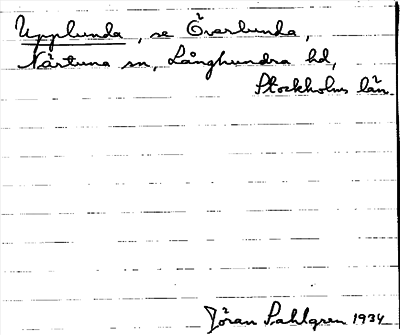 Upplunda, se Överlunda,
Närtuna sn, Långhundra hd,
Stockholms län.
Jöran Sahlgren 1934